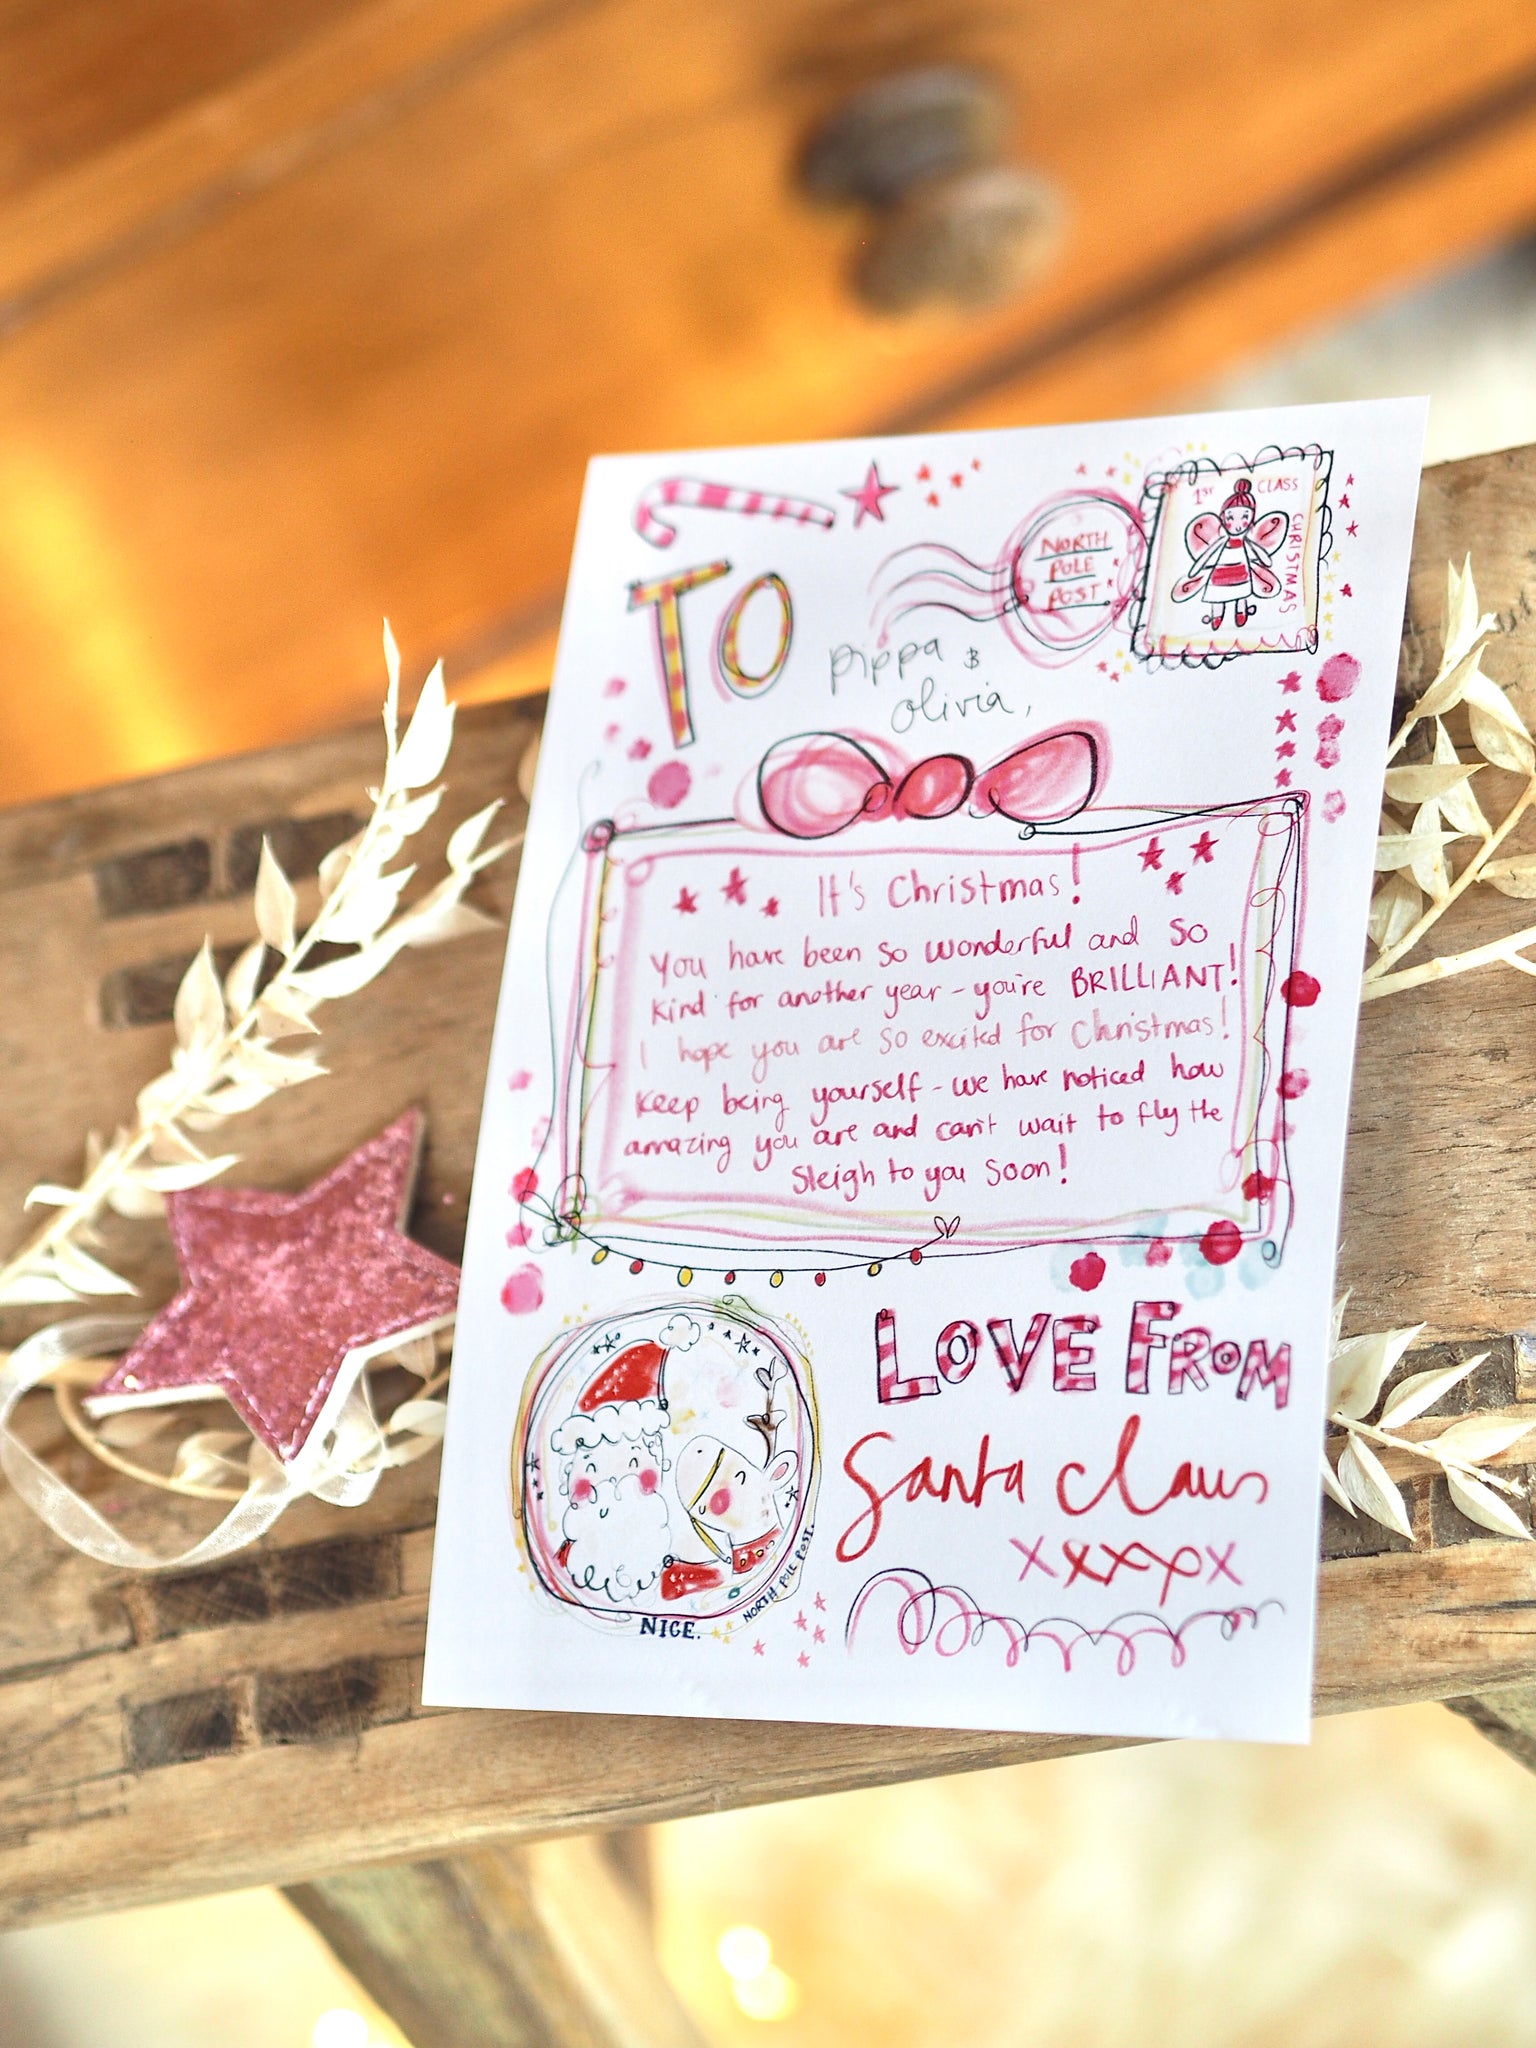 1ST CLASS
CHRISTMAS
NORTH
POLE
POST
TO
pippa &
olivia,
It's Christmas!
You have been so wonderful and so
kind for another year - you're BRILLIANT!
I hope you are so excited for Christmas!
Keep being yourself - we have noticed how
amazing you are and can't wait to fly the
Sleigh to you soon!
LOVE FROM
Santa Claus
xxxxxx
NICE.
NORTH POLE POST.